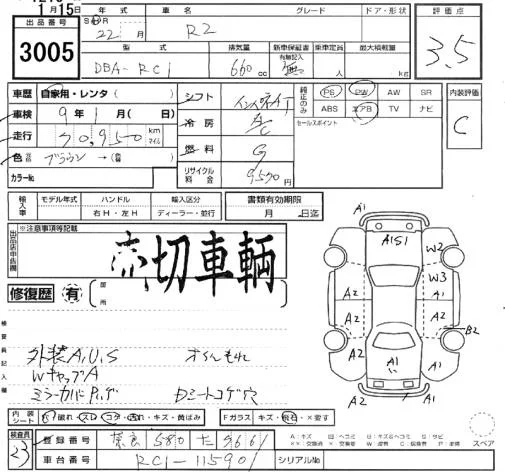 1月15日
出品番号
3005
年式 車名 グレード ドア・形状
22年 月 R2
型式 排気量 新車保証書 有無記入 乗車定員 最大積載量
DBA-RC1 660cc 無 人 kg
評価点
3.5
車歴 自家用・レンタ( )
車検 9年1月 日
走行 km マイル
色 ブラウン→( )
カラーNo.
シフト インパネAT
冷房 A/C
燃料 G
リサイクル料金 9590円
純正のみ
PS PW AW SR
ABS エアB TV ナビ
セールスポイント
内装評価
C
輸入車
モデル年式 ハンドル 輸入区分
年 右H・左H ディーラー・並行
書類有効期限
月 日迄
出品店申告欄
※注意事項等記載
流切車輌
修復歴 有 箇所
検査員記入欄
外装A,U,S オイルもれ
WキャップA
ミラーカバーPハゲ Dミートコゲ穴
A1
A1S1
W2
A2
W3
A2
A1
A2
A2
B2
A1
A2
A1
A1
内装シート
破れ・スレ・コゲ・汚れ・キズ・黄ばみ
Fガラス キズ・飛石・×要す
スペア
検査員
23
登録番号 奈良 580
車台番号 RC1-115901 シリアルNo.